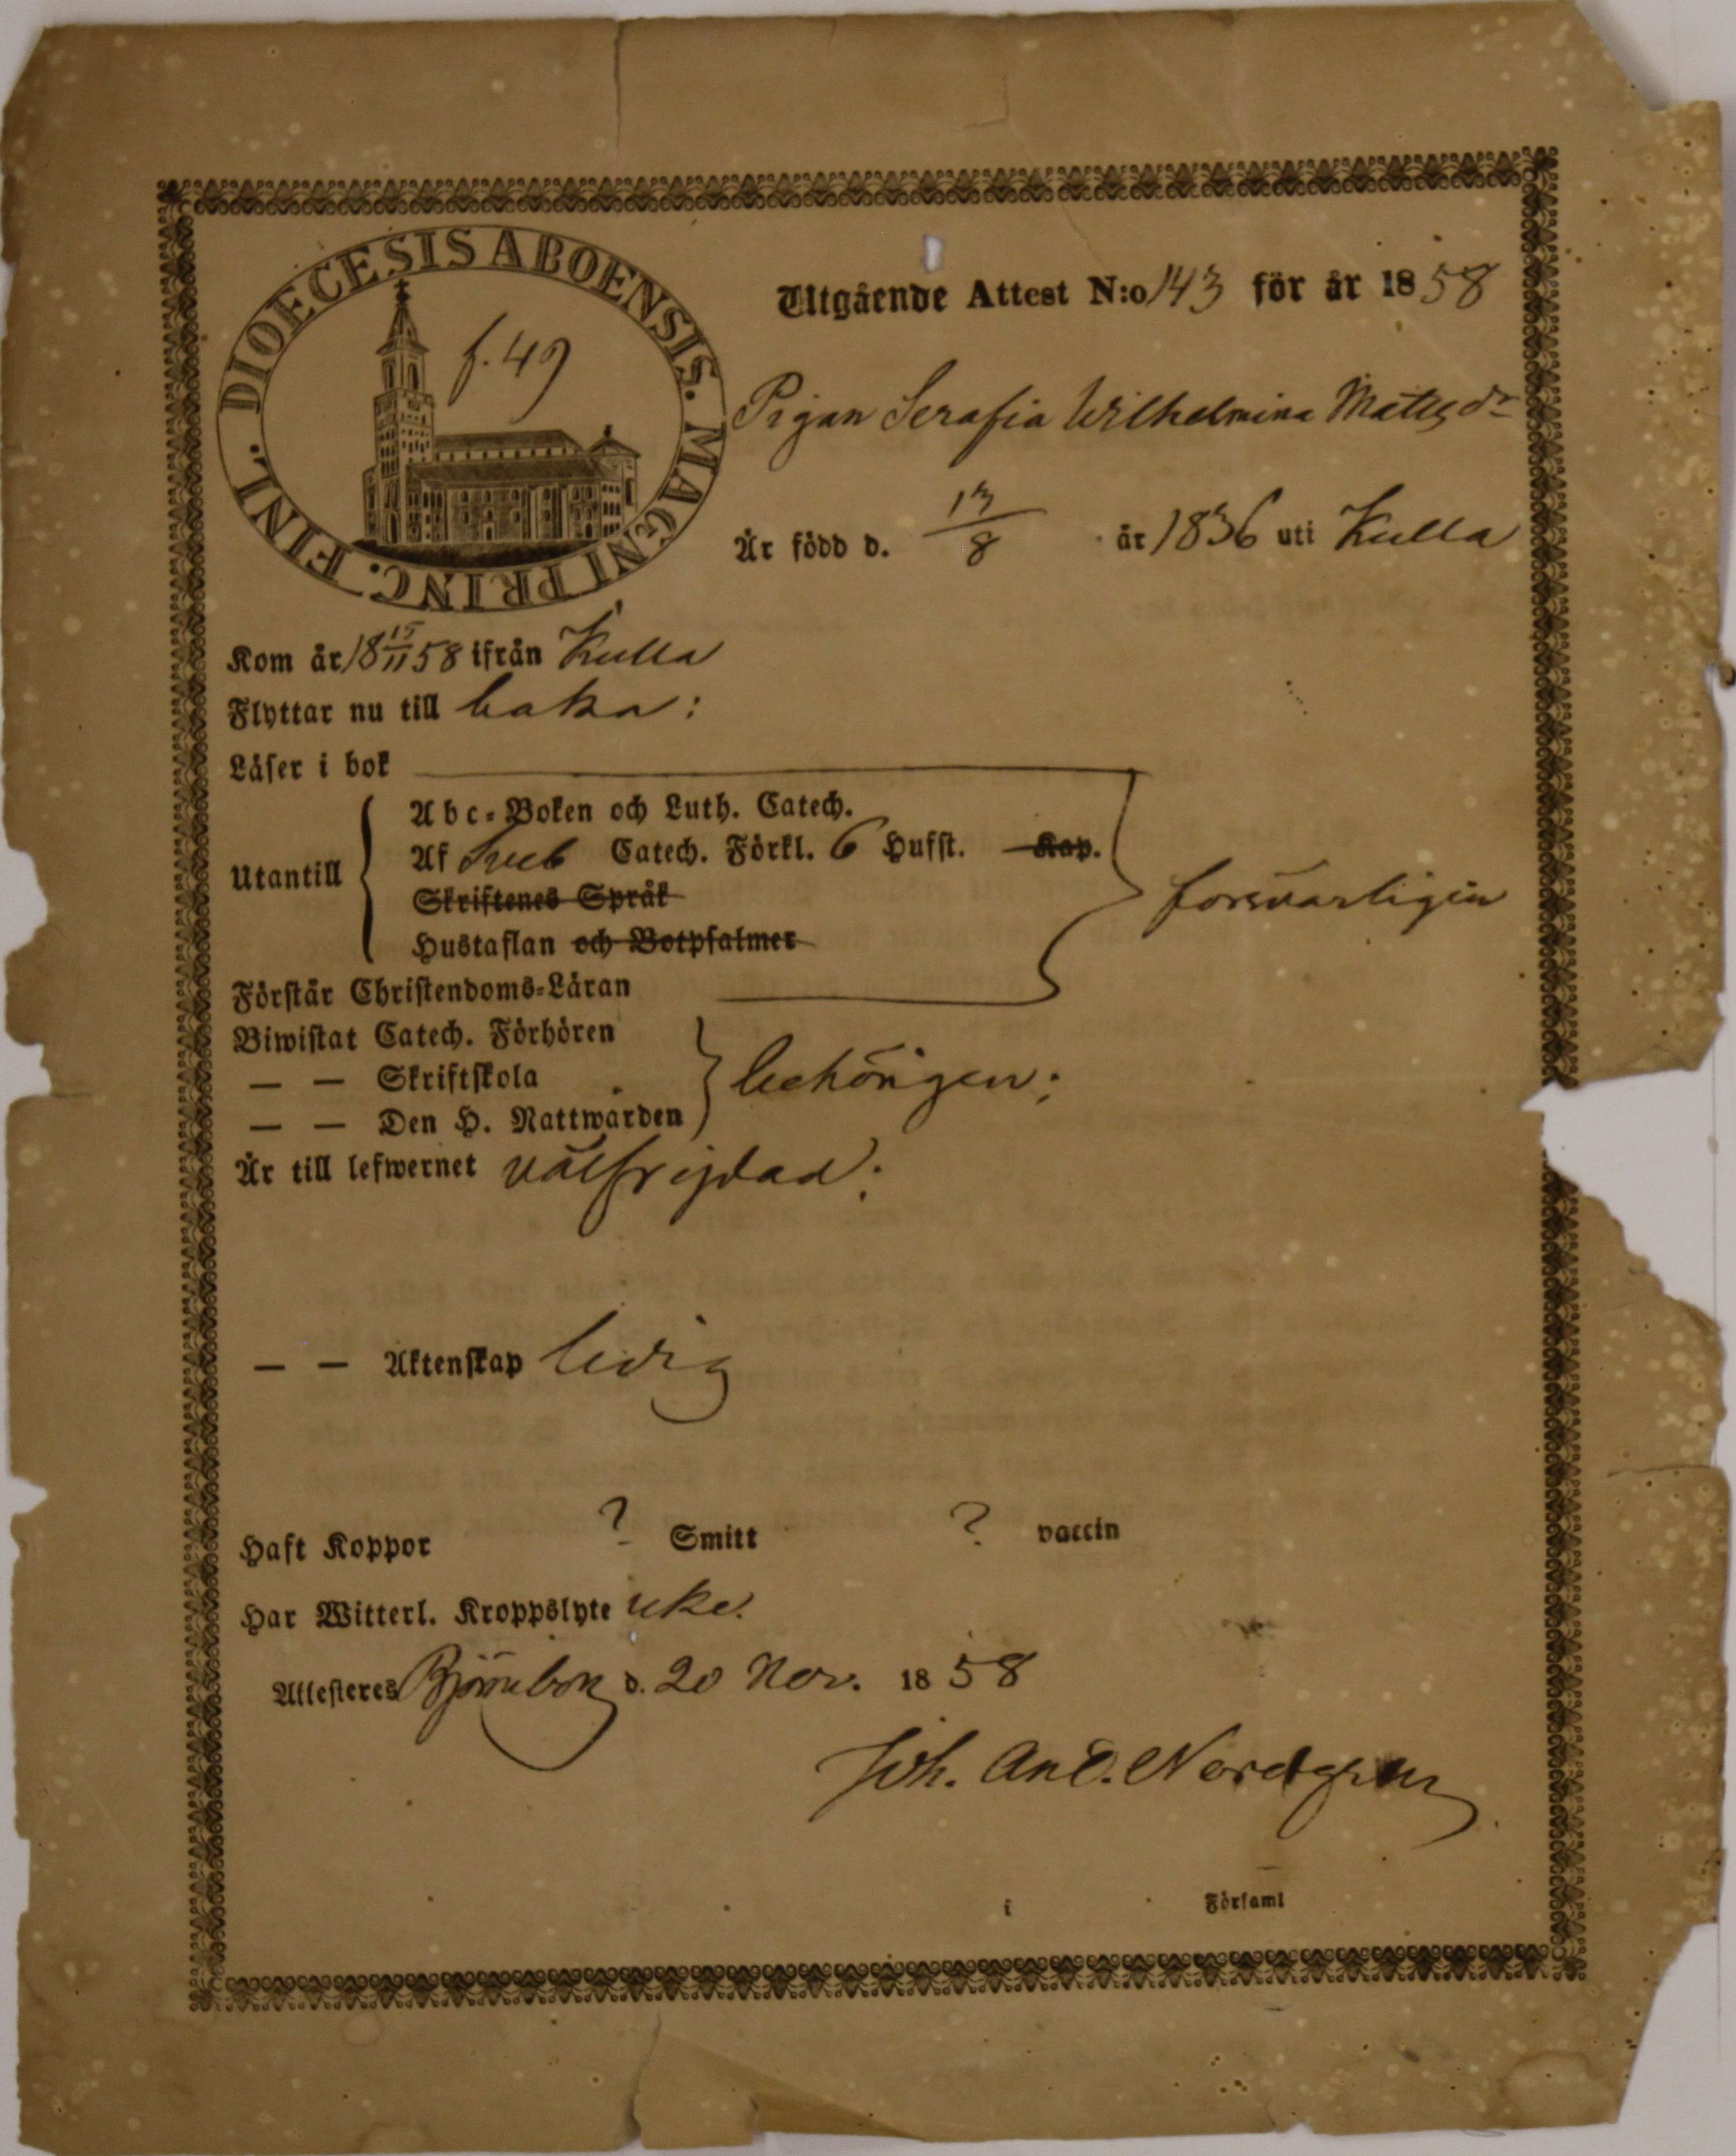 DIOECESIS ABOENSIS. MAGNI PRINC. FINL.
f. 49
Utgående Attest N:o 143 för år 1858
Pigan Serafia Wilhelmina Mattsdr
Är född d. 13/8 år 1836 uti Kulla
Kom år 18 15/11 58 ifrån Kulla
Flyttar nu till baka:
Läser i bok
Utantill
Abc-Boken och Luth. Catech.
Af Sveb Catech. Förkl. 6 Hufst. Kap.
Skriftenes Språk
Hustaflan och Botpsalmer
försvarligen
Förstår Christendoms-Läran
Biwistat Catech. Förhören
— — Skriftskola
— — Den H. Nattwarden
behörigen:
Är till lefwernet välfrejdad:
— — Äktenskap ledig
Haft Koppor ? Smitt ? vaccin
Har Witterl. Kroppslyte icke.
Attesteres Björneborg d. 20 Nov. 1858
Joh. And. Nordgren
i Församl